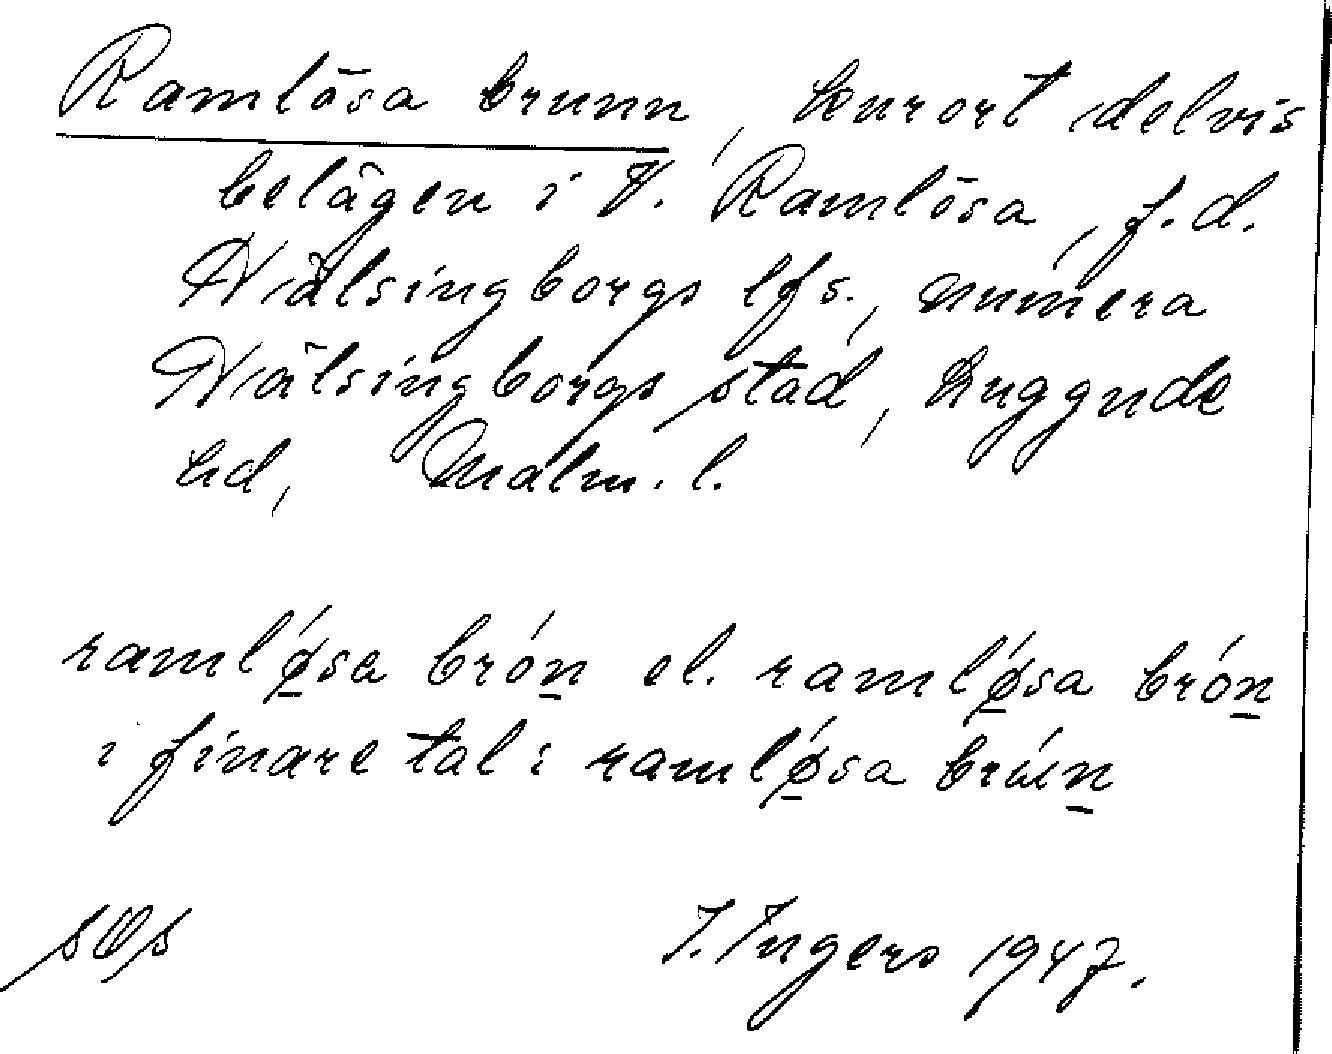 Ramlösa brunn, kurort delvis
belägen i V. Ramlösa, f.d.
Hälsingborgs lfs., numera
Hälsingborgs stad, Luggude
hd, Malm. l.
ramlǿ̱sa brón̲ el. ramlǿ̱sa brón̲
i finare tal: ramlǿ̱sa brún̲
I. Ingers 1947.